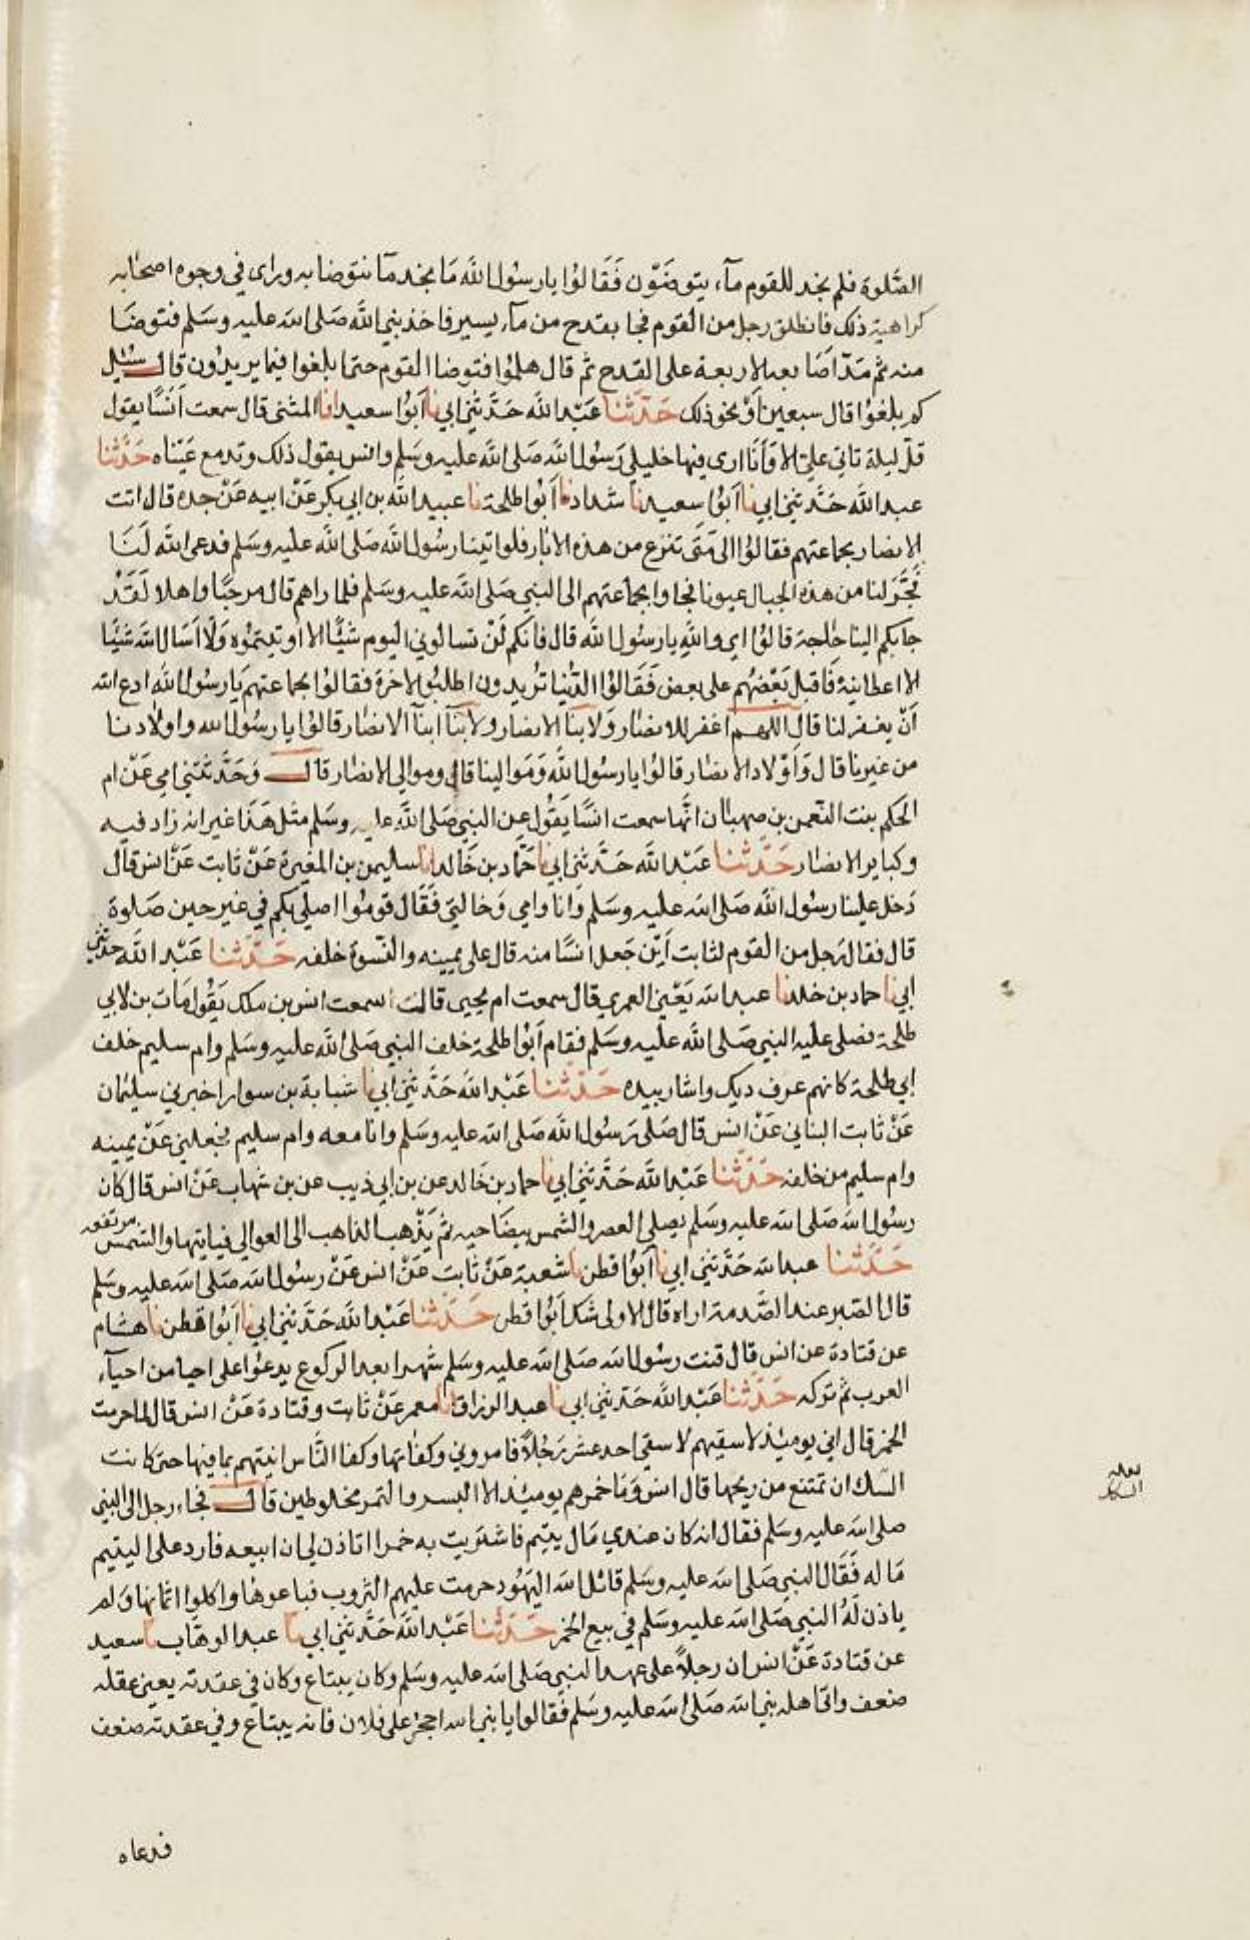 الصَّلوة فلم يجد للقوم مآء يتوضَّوّن فَقَالوُا يارسُول الله مَا نجد مآ نتوضا به وراى في وجوه اصحابه
كراهية ذلك فانطلق رجل من القوم فجا بقدح من مآء يسير فاخذ بني الله صَلى الله عليه وسَلم فتوضا
منه ثم مَدّ اصَابعه الاربعة على القدح ثم قال هلموُا فتوضا القوم حتما بلغوا فيما يريدون قال سئيل
كم بلغوُا قال سبعين اوْ نحو ذلك حَدَّثنا عَبْد الله حَدَّثني ابي نا اَبُوا سعيد انا المثنى قال سمعت اَنسًا يقول
قلّ ليلة تاتي عليّ الا وَاَنَا ارى فيها خليلي رَسُول الله صَلى الله عليه وسَلم وانس يقول ذلك وتدمع عَيناه حَدَّثنا
عبد الله حَدَّثني ابي نا اَبُوا سعيد نا شداد نا اَبُوا طلحة نا عبيد الله بن ابي بكر عَنْ ابيه عَنْ جده قال اتت
الانصار بجماعتهم فقالوُا الى مَتى تنزع من هذه الابار فلو اتينا رسُول الله صَلى الله عليه وسَلم فدعى الله لَنَا
فجَّر لنا من هذه الجبال عيونا فجاوا بجماعتهم الى النبي صَلى الله عليه وسَلم فلما راهم قال مرحبًا واهلا لَقَدْ
جآبكم الينا حاجة قالوُا اي والله يارسُول الله قال فانكم لَنْ تسالوني اليوم شيًّا الا اوتيتموُه وَلَا اَسَال الله شيًا
الا اعطانيه فَاقبل بَعْضهُم على بعض فَقَالوُا الدّنيا تُريدون اطلبُوا الاخرة فقالوُا بجماعتهم يَا رسُول الله ادع الله
اَنْ يغفر لنا قال اللهم اغفر للانصَار وَلابنَا الانصار ولابنَآ ابنآ الانصَار قالوُا يا رسُول الله واولادنا
من غيرنا قال وَاَوْلاد الانصَار قالوُا يارسُول الله وَمَوالينا قال وموالي الانصَار قال وَحَدَّثتني امي عَنْ ام
الحكم بنت النّعمن بن صهبان انّهَا سمعت انسًا يَقُول عن النبي صَلى الله عليه وسَلم مثل هَذا غير انه زاد فيه
وكباير الانصَار حَدَّثنا عَبْد الله حَدَّثني ابي نا حَمَّاد بن خَالد انا سليمن بن المغيرة عَنْ ثابت عَنْ انس قال
دَخل علينا رسُول الله صَلى الله عليه وسَلم وَانا وامي وَخالتي فَقَال قومُوا اصلى بكم في غير حين صَلوة
قال فقال رَجل من القوم لثابت اَين جَعل انسًا منه قال على يمينه والنّسوة خلفه حَدَّثنا عَبْد الله حدثني
ابي نا حماد بن خلد نا عبد الله يَعْني العمري قال سمعت ام يحيى قالت سمعت انس بن ملك يَقُول مَات بن لابي
طلحة فصلى عليه النبي صَلى الله عليه وسَلم فقام اَبُوا طلحة خلف النبي صَلى الله عليه وسَلم وام سليم خلف
ابي طلحة كانهم عرف ديك واشار بيده حَدَّثنا عَبْد الله حَدَّثني ابي نا شبابة بن سوار اخبرني سليمان
عَنْ ثابت البناني عَنْ انس قال صَلى رَسُول الله صَلى الله عليه وسَلم وانا معه وام سليم فجعلني عَنْ يمينه
وام سليم من خلفه حَدَّثنا عَبْد الله حَدَّثني ابي نا حماد بن خَالد عن بن ابي ذيب عن بن شهاب عَنْ انس قال كان
رسُول الله صَلى الله عليه وسَلم يصلي العصر والشمس بيضَا حيه ثم يَذْهب الذاهب الى العوالي فياتيها والشمس مرتفعه
حَدَّثنا عبد الله حَدَّثني ابي نا اَبُوا قطن نا شعبة عَنْ ثابت عَنْ انس عَنْ رسُول الله صَلى الله عليه وسَلم
قال الصّبر عند الصَّدمة اراه قال الاولى شك اَبُوا قطن حَدَّثنا عَبْد الله حَدَّثني ابي نا اَبُوا قطن نا هشام
عن قتادة عن انس قال قنت رسُول الله صَلى الله عليه وسَلم شهرا بعد الركوع يدعوُا على احيا من احيآء
العرب ثم تركه حَدَّثنا عَبْد الله حَدَّثني ابي نا عبد الرزاق انا معمر عَنْ ثابت وقتادة عَنْ انس قال لما حرمت
الخمر قال اني يوميذ لاسقيهم لاسقي احد عشر رَجُلاً فامروني وكفاتها وكفا النَّاس انيتهم بما فيها حتى كانت
السكك ان تمتنع من ريحها قال انس وَمَا خمرهم يوميذ الا البسر والتمر مخلوطين قال فجاء رجل الى النبي
صلى الله عليه وسَلم فقال انه كان عندي مَال يتيم فاشتريت به خمرا اتاذن لي ان ابيعه فارد على اليتيم
مَاله فَقَال النبي صَلى الله عليه وسَلم قاتل الله اليَهُود حرمت عليهم الثروب فباعوهَا واكلوا اثمانها وَلم
ياذن لَهُ النبي صَلى الله عليه وسَلم في بيع الخمر حَدَّثنا عَبْد الله حَدَّثني ابي نا عبد الوهاب نا سعيد
عن قتادة عَنْ انس ان رجلاً على عهد النبي صَلى الله عليه وسَلم وكان يبتاع وكان في عقدته يعني عقله
ضعف واتا اهله بني الله صَلى الله عليه وسَلم فقالوا يا بني الله احجر على فلان فانه يبتاع وفي عقدته ضعف
فدعاه